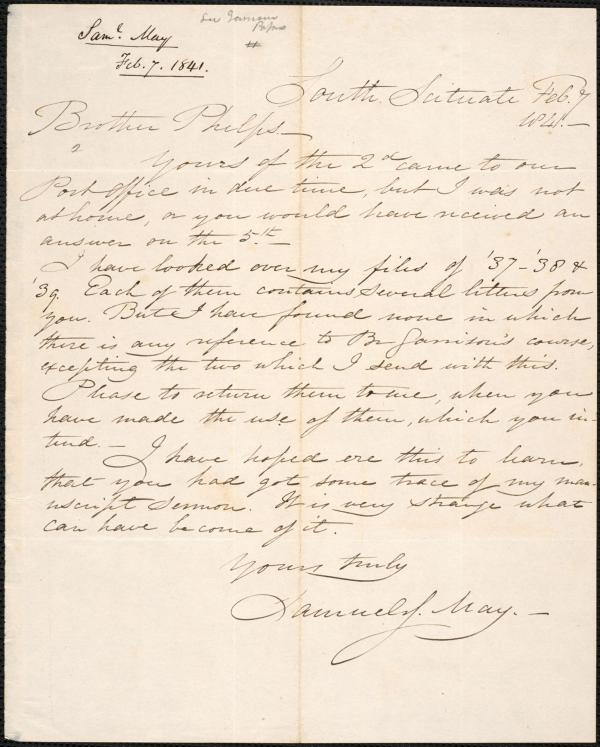 Saml. May
Feb. 7. 1841.
See Garrison
Papers
South Scituate Feb. 7
1841. —
Brother Phelps. —
Yours of the 2d came to our
Post Office in due time, but I was not
at home, or you would have received an
answer on the 5th. —
I have looked over my files of '37 - '38 &
'39. Each of them contains several letters from
you. But I have found none in which
there is any reference to Br Garrison's course,
excepting the two which I send with this.
Please to return them to me, when you
have made the use of them, which you in-
tend. —
I have hoped ere this to learn,
that you had got some trace of my man-
uscript Sermon. It is very strange what
can have become of it.
Yours truly
Samuel J. May. —